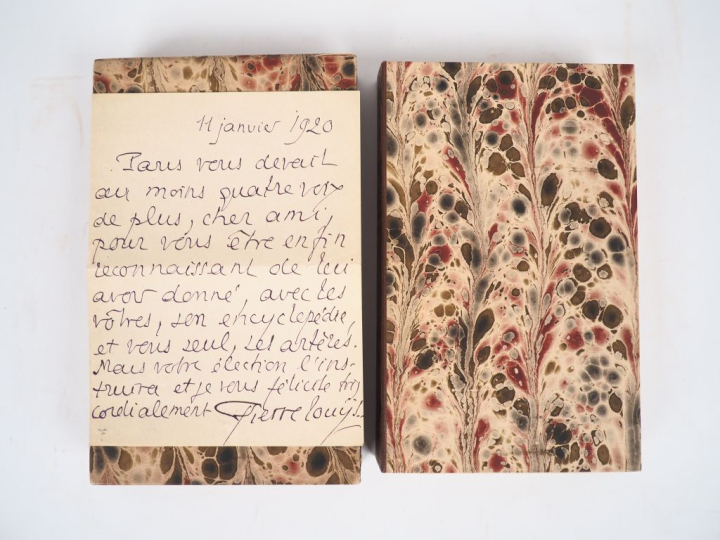 11 janvier 1920
Paris vous devait
au moins quatre voix
de plus, cher ami,
pour vous être enfin
reconnaissant de lui
avoir donné, avec les
vôtres, son encyclopédie,
et vous seul, ses artères.
Mais votre élection l'ins-
truira et je vous félicite très
cordialement Pierre Louÿs